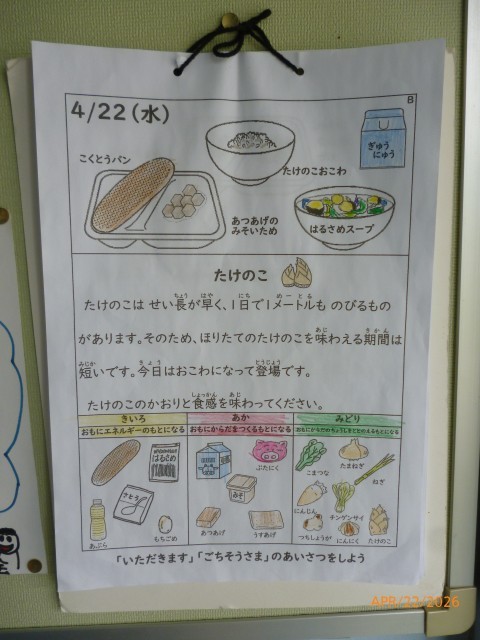 B
4/22(水)
こくとうパン
たけのこおこわ
ぎゅうにゅう
あつあげの
みそいため
はるさめスープ
たけのこ
たけのこは せい長が早く、1日で1メートルも のびるもの
があります。そのため、ほりたてのたけのこを味わえる期間は
短いです。今日はおこわになって登場です。
たけのこのかおりと食感を味わってください。
きいろ あか みどり
おもにエネルギーのもとになる おもにからだをつくるもとになる おもにからだのちょうしをととのえるもとになる
はるさめ
さとう
あぶら
もちごめ
ぶたにく
みそ
あつあげ
うすあげ
こまつな
たまねぎ
ねぎ
にんじん
チンゲンサイ
つちしょうが
にんにく
たけのこ
「いただきます」「ごちそうさま」のあいさつをしよう
APR/22/2026